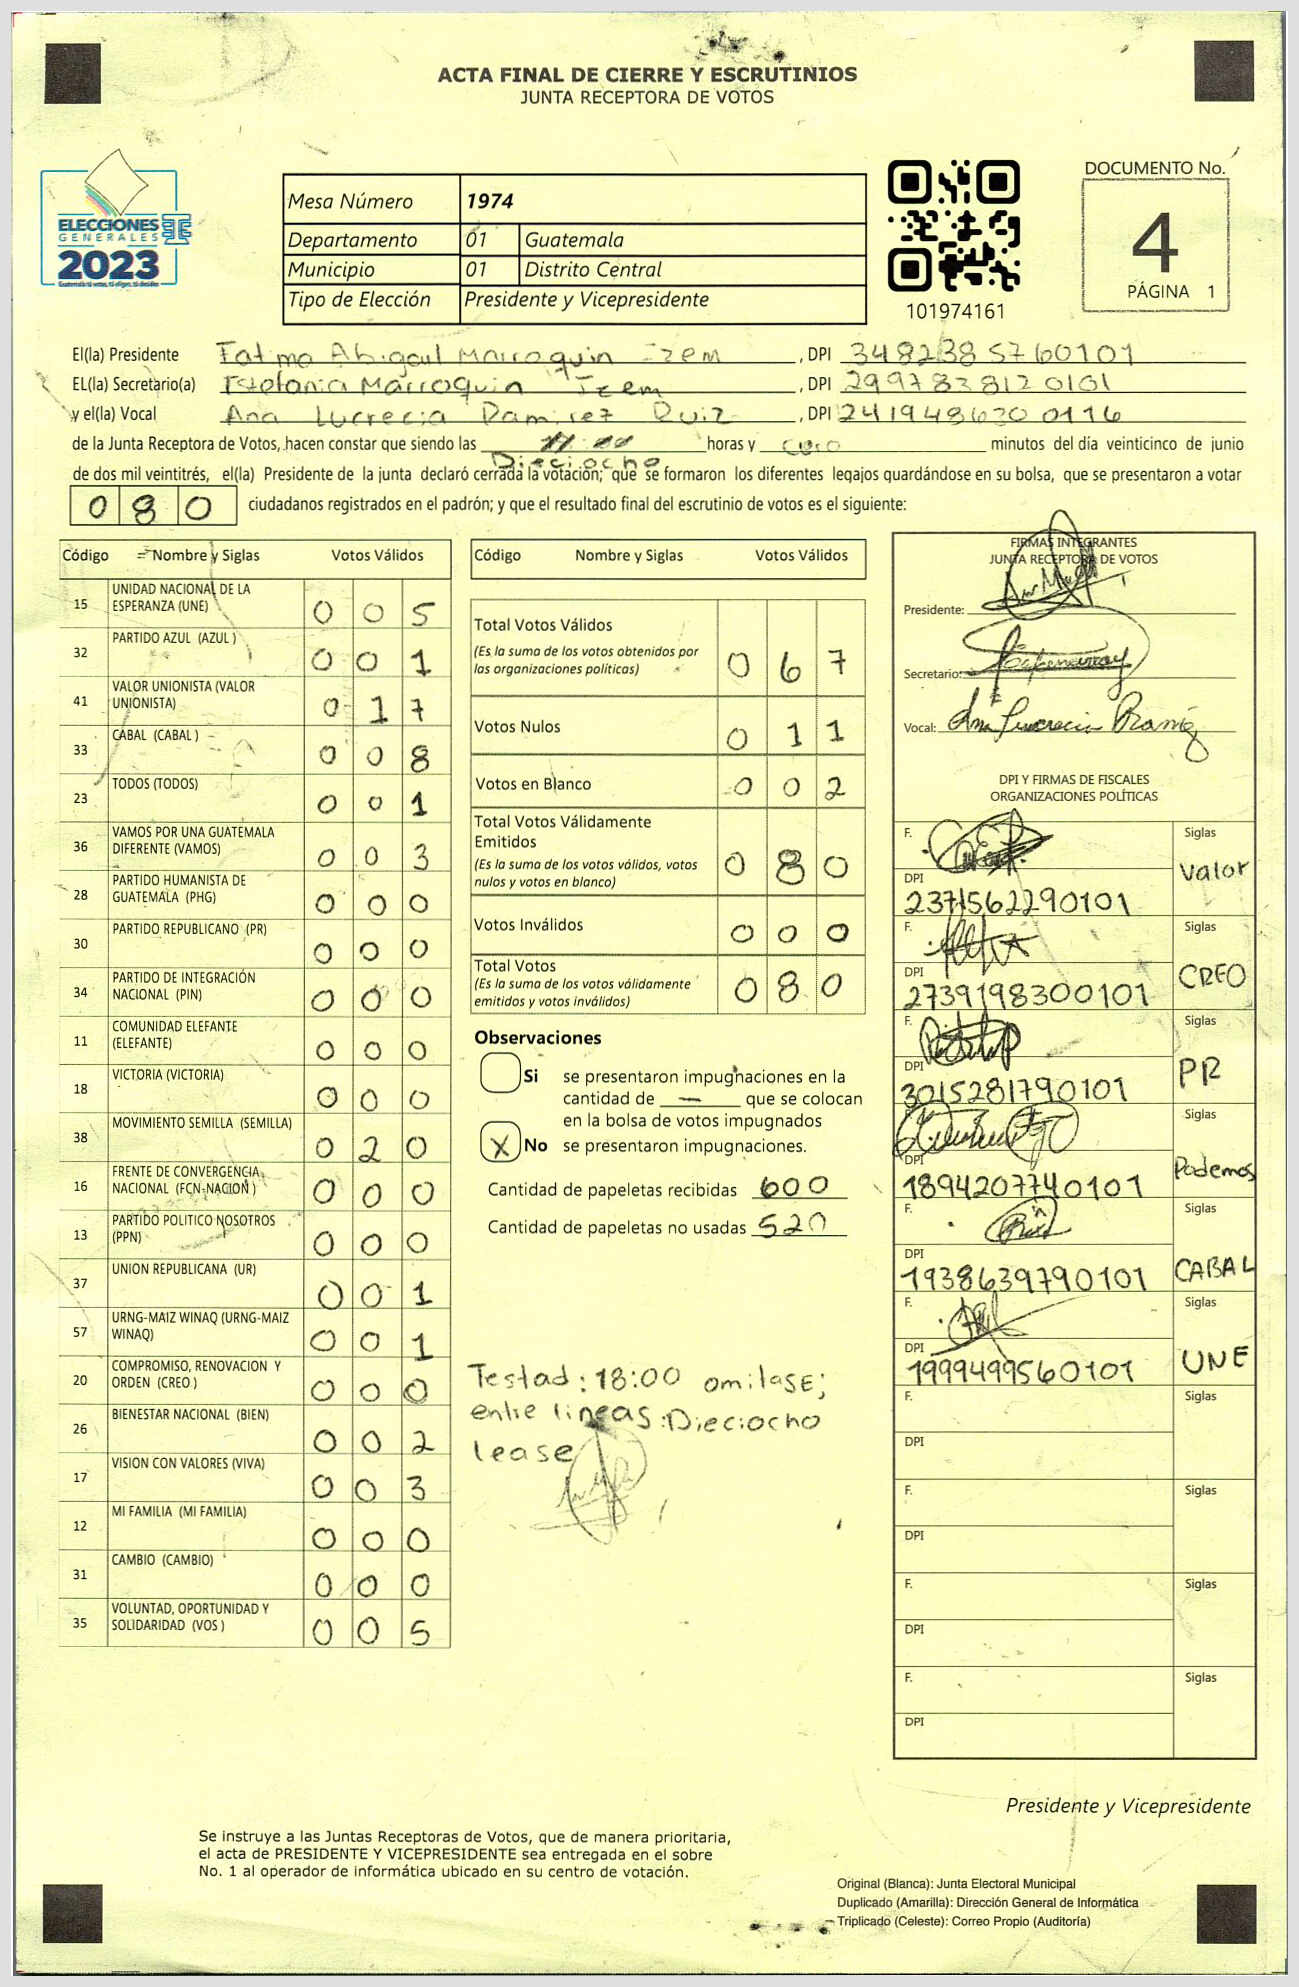 ACTA FINAL DE CIERRE Y ESCRUTINIOS
JUNTA RECEPTORA DE VOTOS
ELECCIONES
GENERALES
2023
Mesa Número 1974
Departamento 01 Guatemala
Municipio 01 Distrito Central
Tipo de Elección Presidente y Vicepresidente
101974161
DOCUMENTO No.
4
PÁGINA 1
El(la) Presidente Fatima Abigail Marroquin Izem, DPI 3482385760101
EL(la) Secretario(a) Estefania Marroquin Izem, DPI 2997838120101
y el(la) Vocal Ana Lucrecia Ramirez Ruiz, DPI 2419486300116
de la Junta Receptora de Votos, hacen constar que siendo las horas y cero minutos del día veinticinco de junio
Dieciocho
de dos mil veintitrés, el(la) Presidente de la junta declaró cerrada la votación; que se formaron los diferentes legajos guardándose en su bolsa, que se presentaron a votar
080 ciudadanos registrados en el padrón; y que el resultado final del escrutinio de votos es el siguiente:
Código Nombre y Siglas Votos Válidos
15 UNIDAD NACIONAL DE LA ESPERANZA (UNE) 005
32 PARTIDO AZUL (AZUL ) 001
41 VALOR UNIONISTA (VALOR UNIONISTA) 017
33 CABAL (CABAL ) 008
23 TODOS (TODOS) 001
36 VAMOS POR UNA GUATEMALA DIFERENTE (VAMOS) 003
28 PARTIDO HUMANISTA DE GUATEMALA (PHG) 000
30 PARTIDO REPUBLICANO (PR) 000
34 PARTIDO DE INTEGRACIÓN NACIONAL (PIN) 000
11 COMUNIDAD ELEFANTE (ELEFANTE) 000
18 VICTORIA (VICTORIA) 000
38 MOVIMIENTO SEMILLA (SEMILLA) 020
16 FRENTE DE CONVERGENCIA NACIONAL (FCN-NACION ) 000
13 PARTIDO POLITICO NOSOTROS (PPN) 000
37 UNION REPUBLICANA (UR) 001
57 URNG-MAIZ WINAQ (URNG-MAIZ WINAQ) 001
20 COMPROMISO, RENOVACION Y ORDEN (CREO ) 000
26 BIENESTAR NACIONAL (BIEN) 002
17 VISION CON VALORES (VIVA) 003
12 MI FAMILIA (MI FAMILIA) 000
31 CAMBIO (CAMBIO) 000
35 VOLUNTAD, OPORTUNIDAD Y SOLIDARIDAD (VOS ) 005
Código Nombre y Siglas Votos Válidos
Total Votos Válidos
(Es la suma de los votos obtenidos por las organizaciones políticas) 067
Votos Nulos 011
Votos en Blanco 002
Total Votos Válidamente Emitidos
(Es la suma de los votos válidos, votos nulos y votos en blanco) 080
Votos Inválidos 000
Total Votos
(Es la suma de los votos válidamente emitidos y votos inválidos) 080
Observaciones
Si se presentaron impugnaciones en la
cantidad de — que se colocan
en la bolsa de votos impugnados
X No se presentaron impugnaciones.
Cantidad de papeletas recibidas 600
Cantidad de papeletas no usadas 520
Testad: 18:00 omitase;
entre lineas: Dieciocho
lease
FIRMAS INTEGRANTES
JUNTA RECEPTORA DE VOTOS
Presidente:
Secretario:
Vocal: Ana Lucrecia Ramirez
DPI Y FIRMAS DE FISCALES
ORGANIZACIONES POLÍTICAS
F. Siglas
Valor
DPI
2371562290101
F. Siglas
CREO
DPI
2739198300101
F. Siglas
PR
DPI
3015281790101
Siglas
Podemos
DPI
1894207740101
F. Siglas
CABAL
DPI
1938639790101
F. Siglas
UNE
DPI
1999499560101
F. Siglas
DPI
F. Siglas
DPI
F. Siglas
DPI
F. Siglas
DPI
Presidente y Vicepresidente
Se instruye a las Juntas Receptoras de Votos, que de manera prioritaria,
el acta de PRESIDENTE Y VICEPRESIDENTE sea entregada en el sobre
No. 1 al operador de informática ubicado en su centro de votación.
Original (Blanca): Junta Electoral Municipal
Duplicado (Amarilla): Dirección General de Informática
Triplicado (Celeste): Correo Propio (Auditoría)